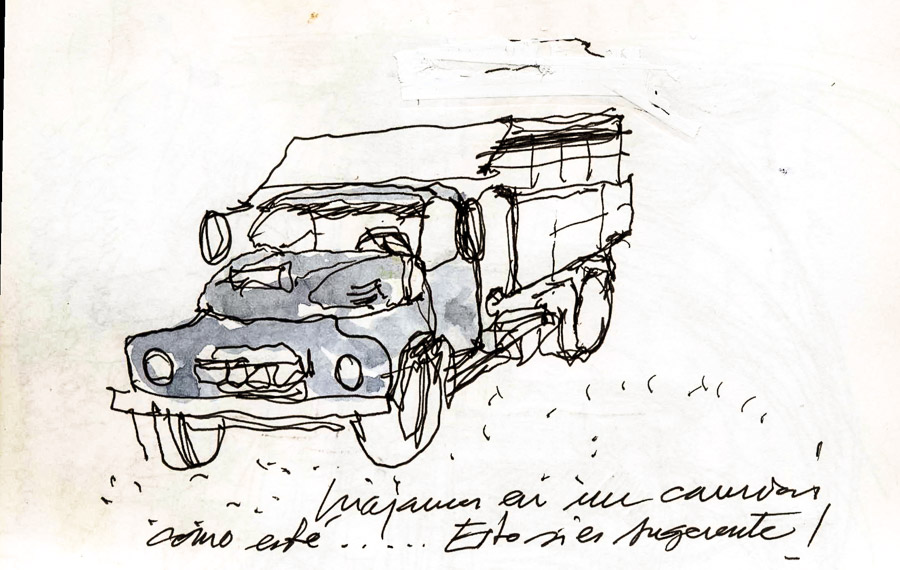 Viajamos en un camión
como este ..... Esto si es sugerente!